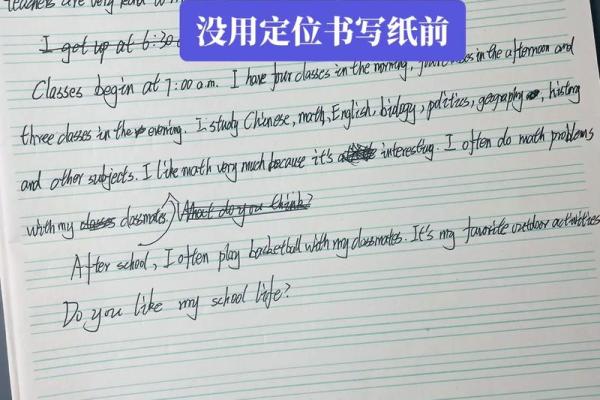 teachers are very kind to
没用定位书写纸前
I get up at 6:30
Classes begin at 7:00 a.m. I have four classes in the morning, four classes in the afternoon and
three classes in the evening. I study Chinese, math, English, biology, politics, geography, history
and other subjects. I like math very much because it's interesting. I often do math problems
with my classes classmates. What do you think?
After school, I often play basketball with my classmates. It's my favorite outdoor activities
Do you like my school life?